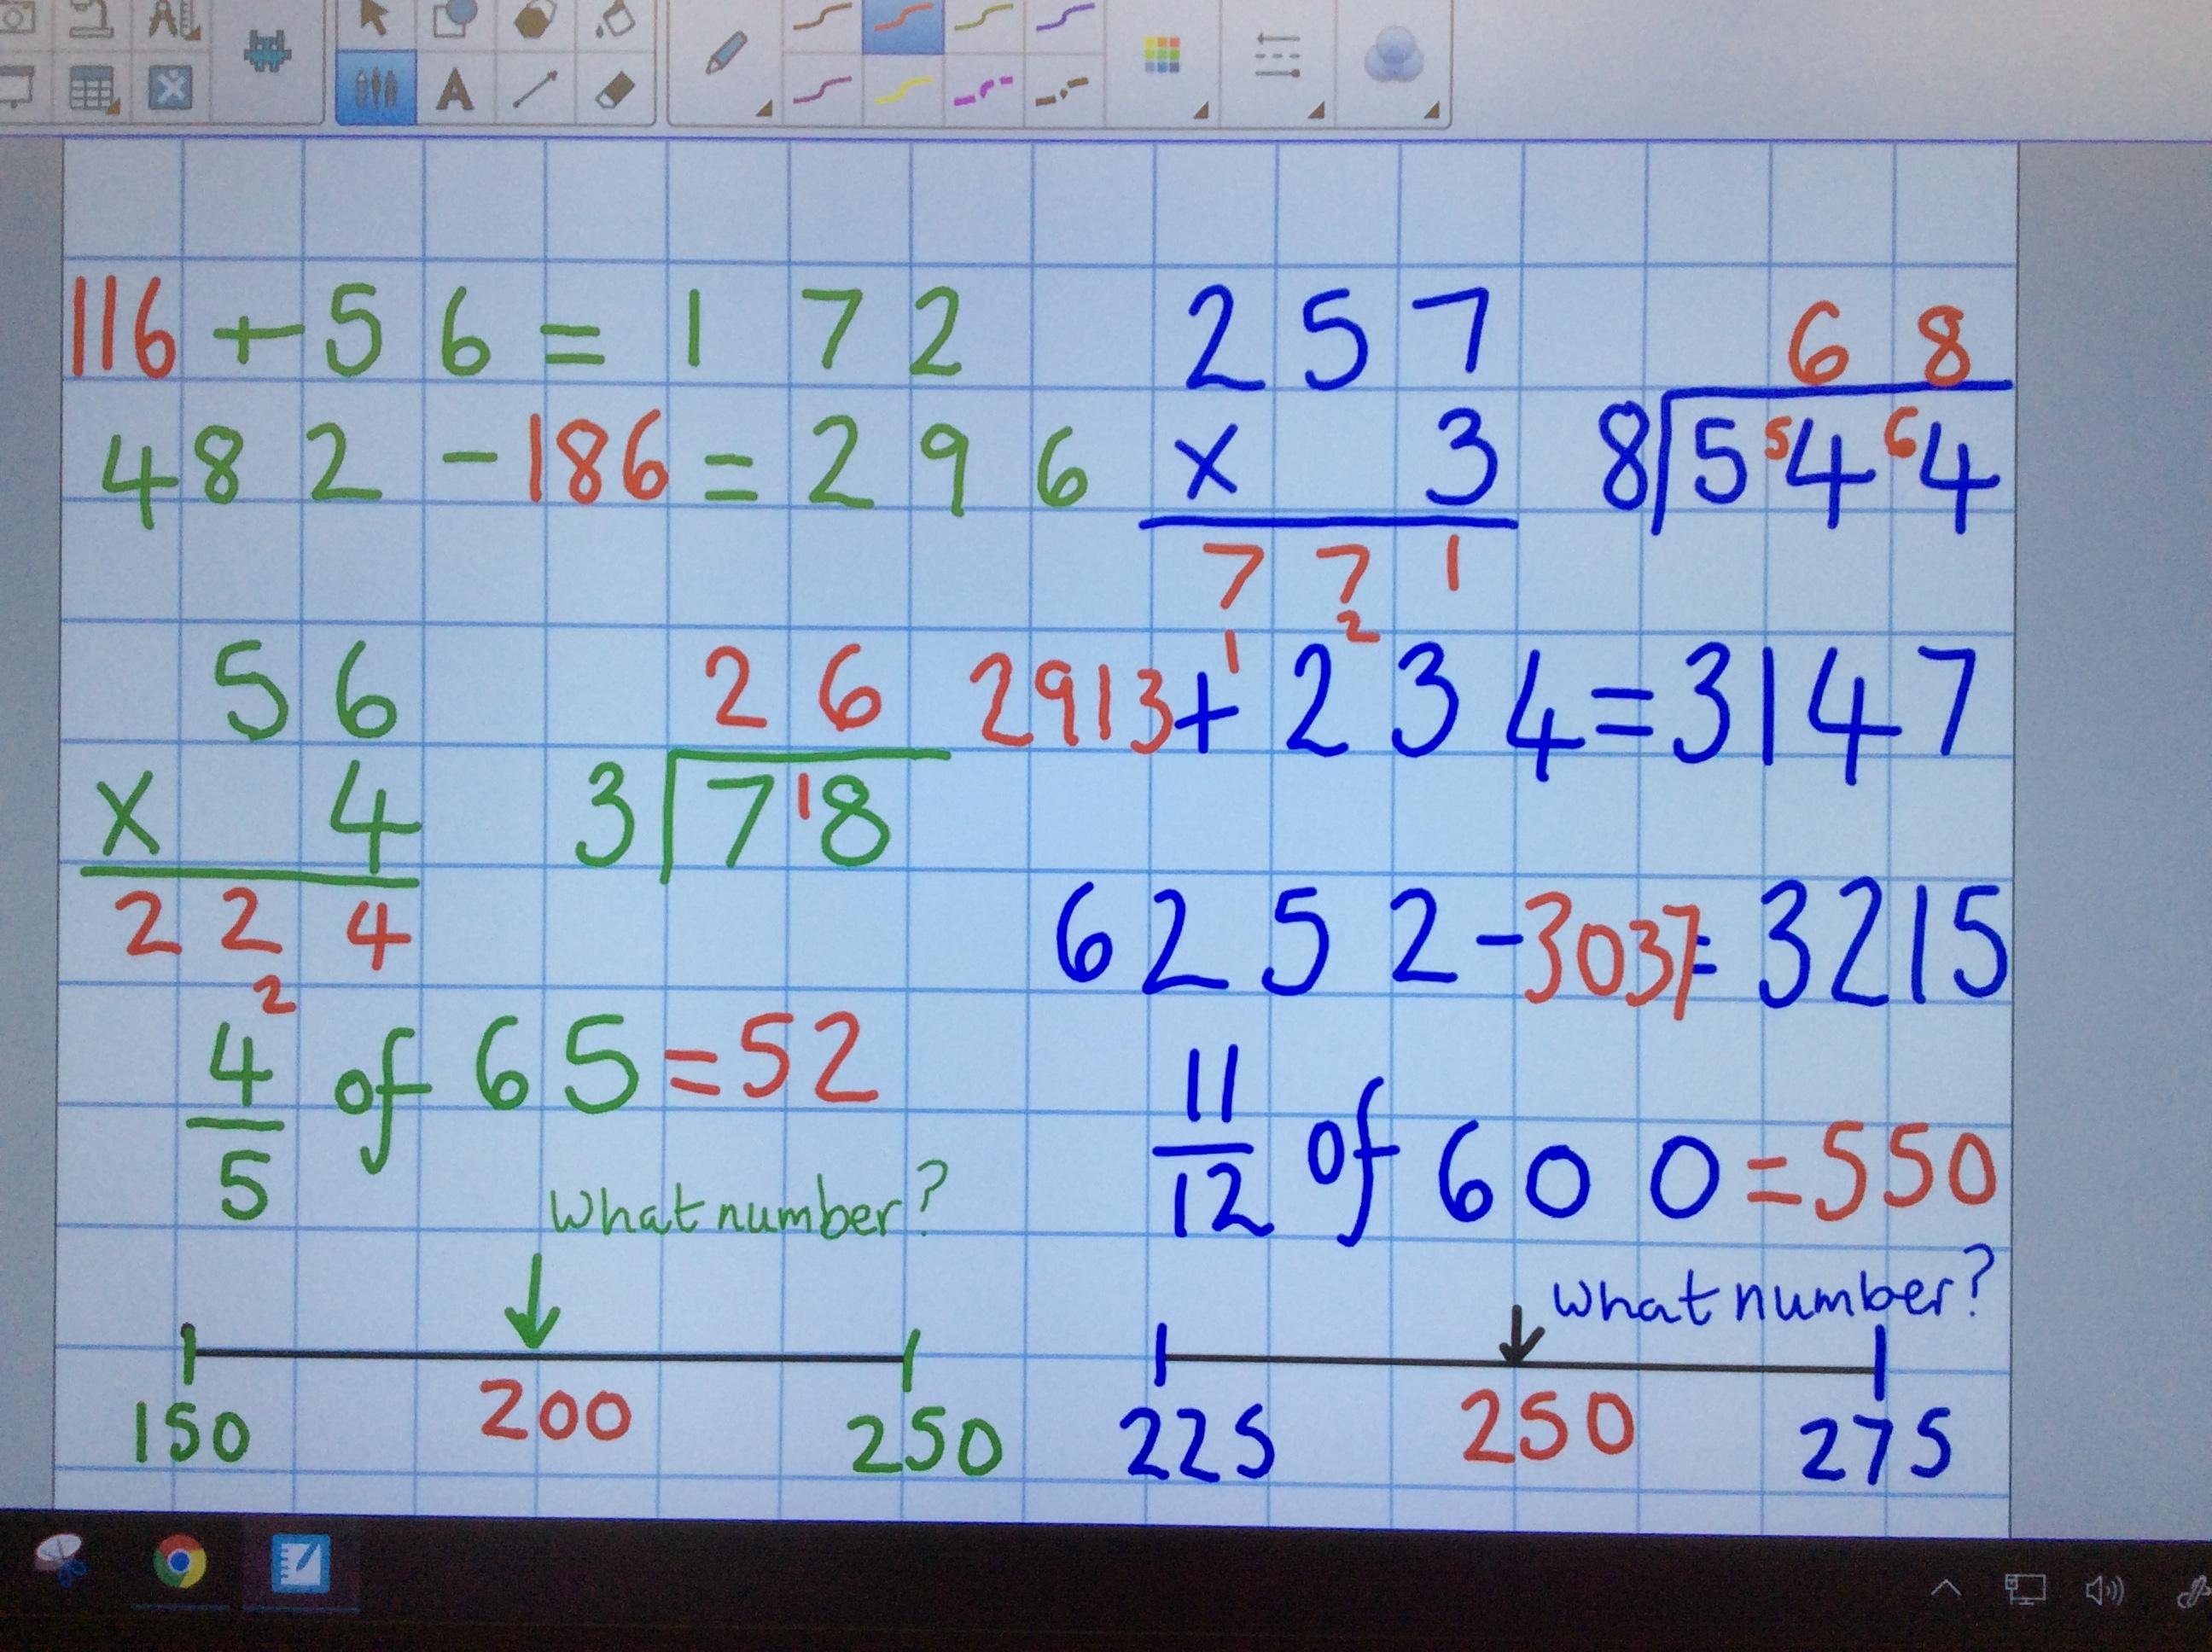 116 + 56 = 172
482 - 186 = 296
257
x 3
771
2
1
68
8 5 5 4 6 4
56
x 4
224
2
26
3 7 1 8
2913 + 234 = 3147
6252 - 3037 = 3215
4
5
of 65 = 52
11
12
of 600 = 550
What number?
150 200 250
What number?
225 250 275